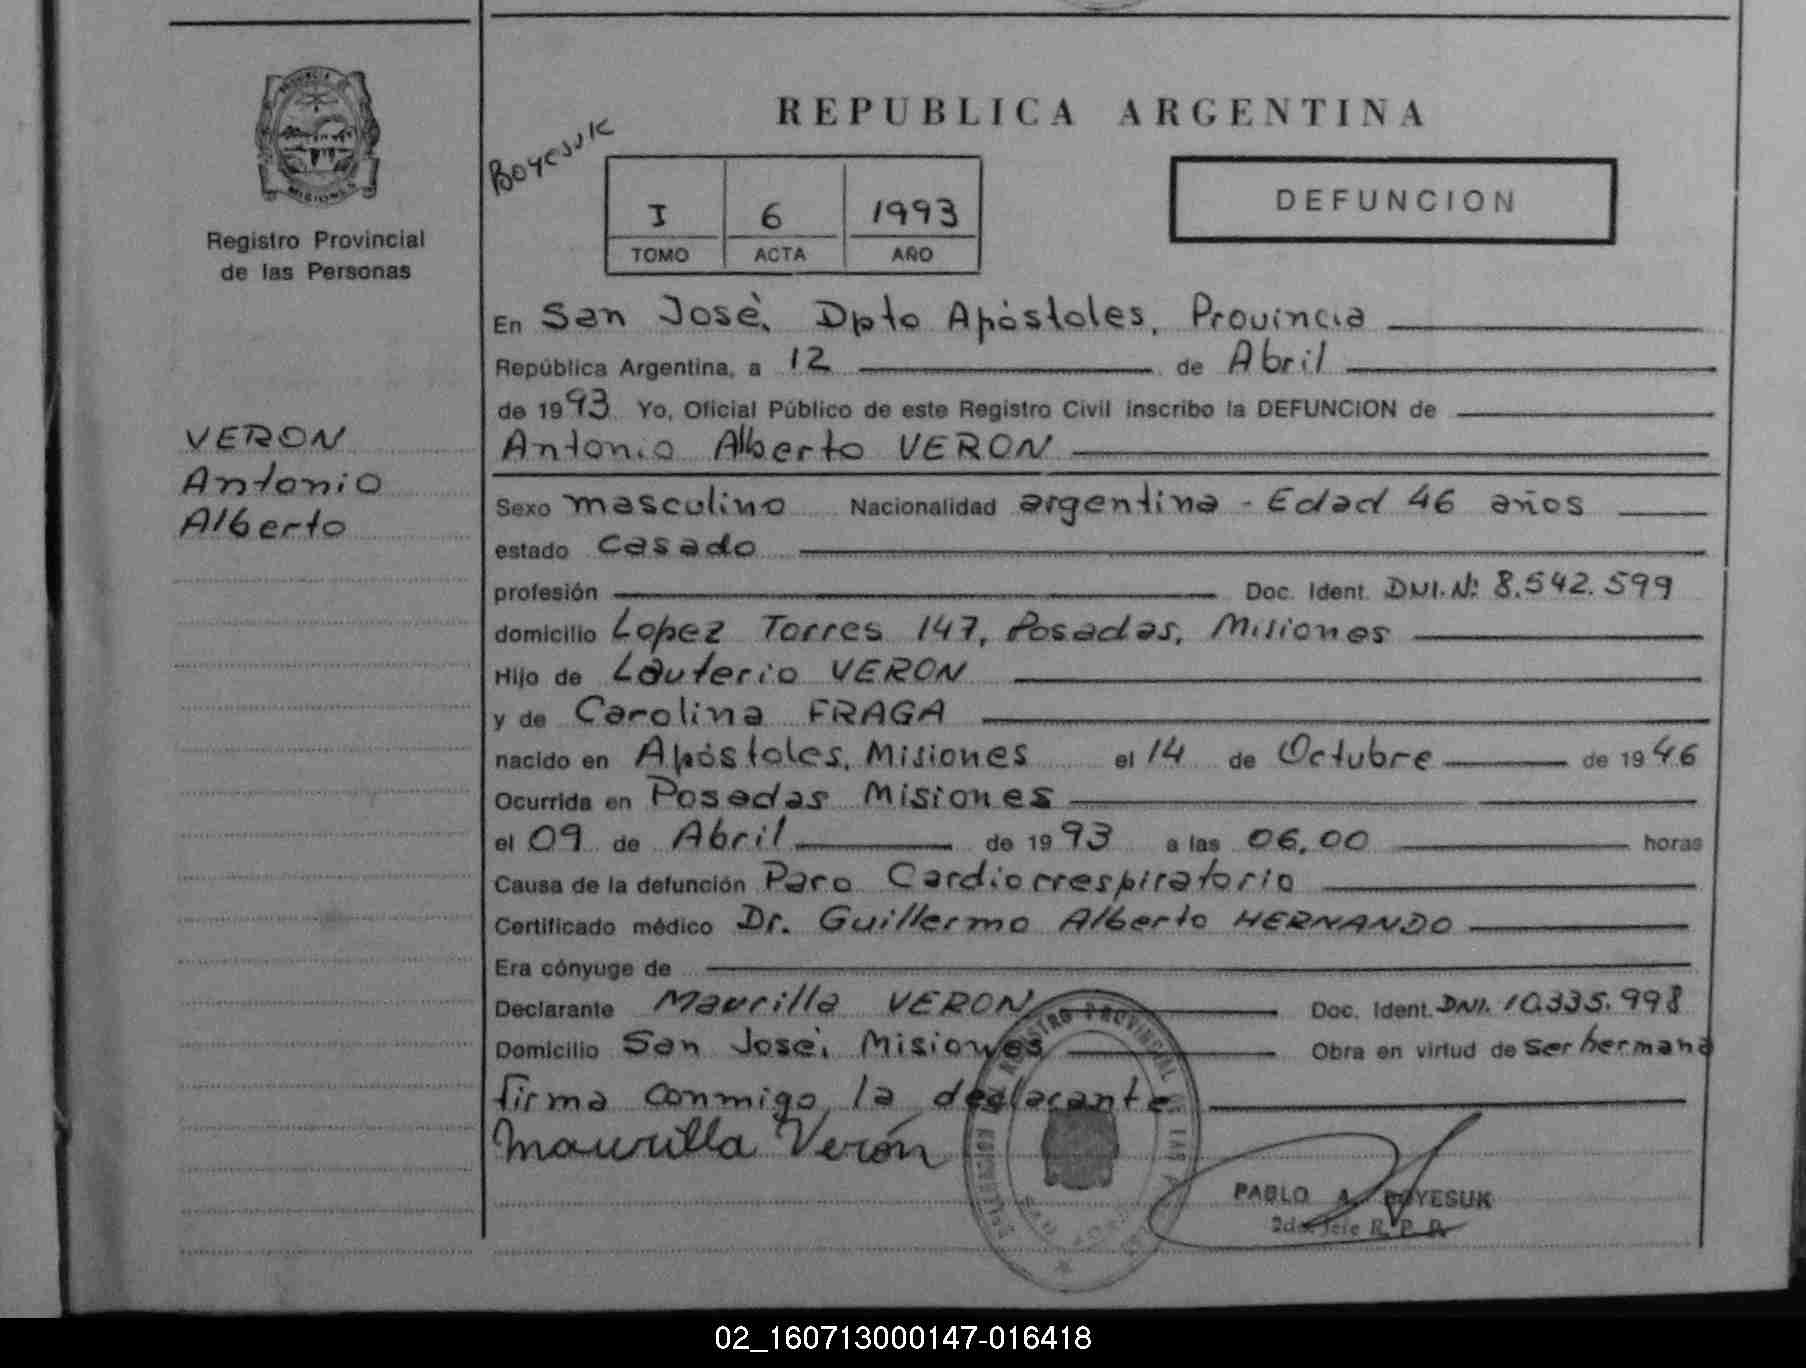 PROVINCIA
MISIONES
Registro Provincial
de las Personas
VERON
Antonio
Alberto
REPUBLICA ARGENTINA
Boyesuk
I 6 1993
TOMO ACTA AÑO
DEFUNCION
En San José, Dpto Apóstoles, Provincia
República Argentina, a 12 de Abril
de 1993 Yo, Oficial Público de este Registro Civil inscribo la DEFUNCION de
Antonio Alberto VERON
Sexo masculino Nacionalidad argentina - Edad 46 años
estado casado
profesión Doc. Ident. DNI. Nº 8.542.599
domicilio Lopez Torres 147, Posadas, Misiones
Hijo de Lauterio VERON
y de Carolina FRAGA
nacido en Apóstoles, Misiones el 14 de Octubre de 1946
Ocurrida en Posadas Misiones
el 09 de Abril de 1993 a las 06,00 horas
Causa de la defunción Paro Cardiorrespiratorio
Certificado médico Dr. Guillermo Alberto HERNANDO
Era cónyuge de
Declarante Maurilla VERON Doc. Ident. DNI. 10.335.998
Domicilio San José, Misiones Obra en virtud de ser hermana
firma conmigo la declarante
Maurilla Verón
DELEGACION REGISTRO PROVINCIAL DE LAS
SAN JOSE
PABLO A. BOYESUK
2do. Jefe R. P. P.
02_160713000147-016418